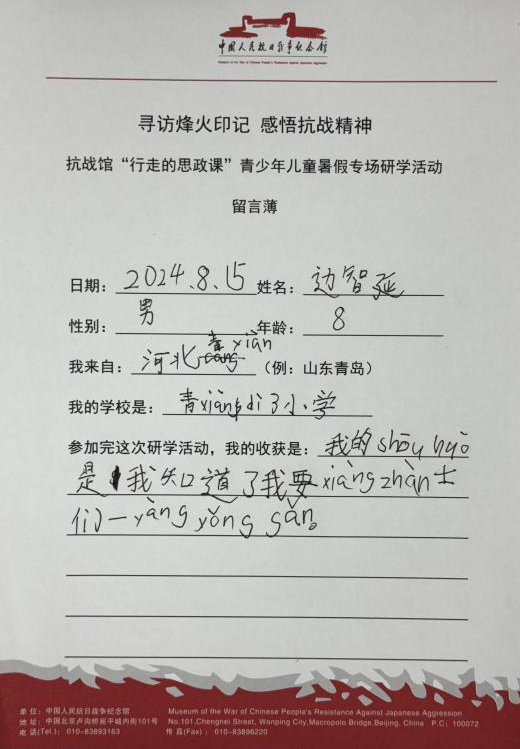 中国人民抗日战争纪念馆
Museum of the War of Chinese People's Resistance Against Japanese Aggression
寻访烽火印记 感悟抗战精神
抗战馆“行走的思政课”青少年儿童暑假专场研学活动
留言薄
日期: 2024.8.15 姓名: 边智延
性别: 男 年龄: 8
我来自: 河北青xiàn (例: 山东青岛)
我的学校是: 青xiàng dì 3小学
参加完这次研学活动, 我的收获是: 我的shōu huò
是我知道了我要xiàng zhàn士
们一yàng yǒng gǎn。
单 位: 中国人民抗日战争纪念馆
地 址: 中国北京卢沟桥宛平城内街101号
电 话(Tel.): 010-83893163
Museum of the War of Chinese People's Resistance Against Japanese Aggression
No.101,Chengnei Street, Wanping City,Marcropolo Bridge,Beijing, China P.C: 100072
传 真(Fax): 010-83896220